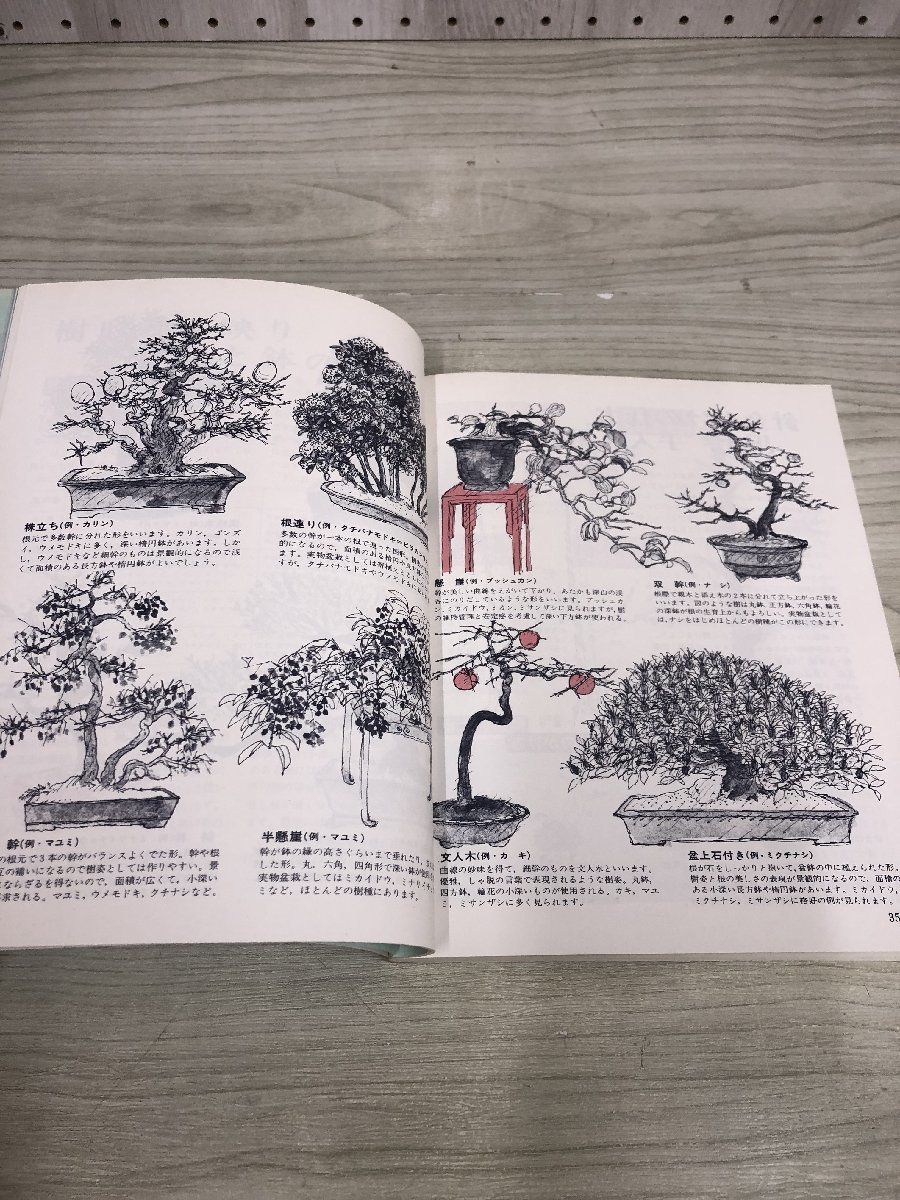 株立ち(例・カリン)
根元で多数幹に分れた形をいいます。カリン、ゴンズ
イ、ウメモドキに多く、深い楕円鉢があいます。しか
し、ウメモドキなど細幹のものは景観的になるので浅
くて面積のある長方鉢や楕円鉢がよいでしょう。
根連り(例・タチバナモドキ
多数の幹が一本の根で連った
的になるので、面積のある楕円
ます。実物盆栽としては
すが、タチバナモドキやウメモドキに
幹(例・マユミ)
の根元で3本の幹がバランスよくでた形。幹や根
の構いになるので樹姿としては作りやすい。景
ならざるを得ないので、面積が広くて、小深い
求される。マユミ、ウメモドキ、クチナシなど。
半懸崖(例・マユミ)
幹が鉢の縁の高さくらいまで垂れたり、
した形。丸、六角、四角形で深い鉢が
実物盆栽としてはミカイドウ、
ミなど、ほとんどの樹種にあります。
懸崖(例・ブッシュカン)
幹が美しい曲線をえがいて下がり、あたかも深山の渓
谷にのりだしているような形をいいます。ブッシュカ
ン、ミカイドウ、ミカン、ミサンザシに見られますが、樹
の維持管理と安定感を考慮して深い下方鉢が使われる。
双幹(例・ナシ)
根際で親木と添え木の2本に分れて立ち上がった形を
いいます。図のような樹は丸鉢、正方鉢、六角鉢、輪花
の深鉢が根の生育上からもよろしい。実物盆栽として
は、ナシをはじめほとんどの樹種がこの形にできます。
文人木(例・カキ)
曲線の妙味を得て、細幹のものを文人木といいます。
優雅、しゃ脱の言葉で表現されるような樹姿。丸鉢、
四方鉢、輪花の小深いものが使用される。カキ、マユ
ミ、ミサンザシに多く見られます。
盆上石付き(例・ミクチナシ)
根が石をしっかりと抱いて、盆鉢の中に植えられた形。
樹姿と根の美しさの表現が景観的になるので、面積の
ある小深い長方鉢や楕円鉢があいます。ミカイドウ、
ミクチナシ、ミサンザシに格好の例が見られます。
35